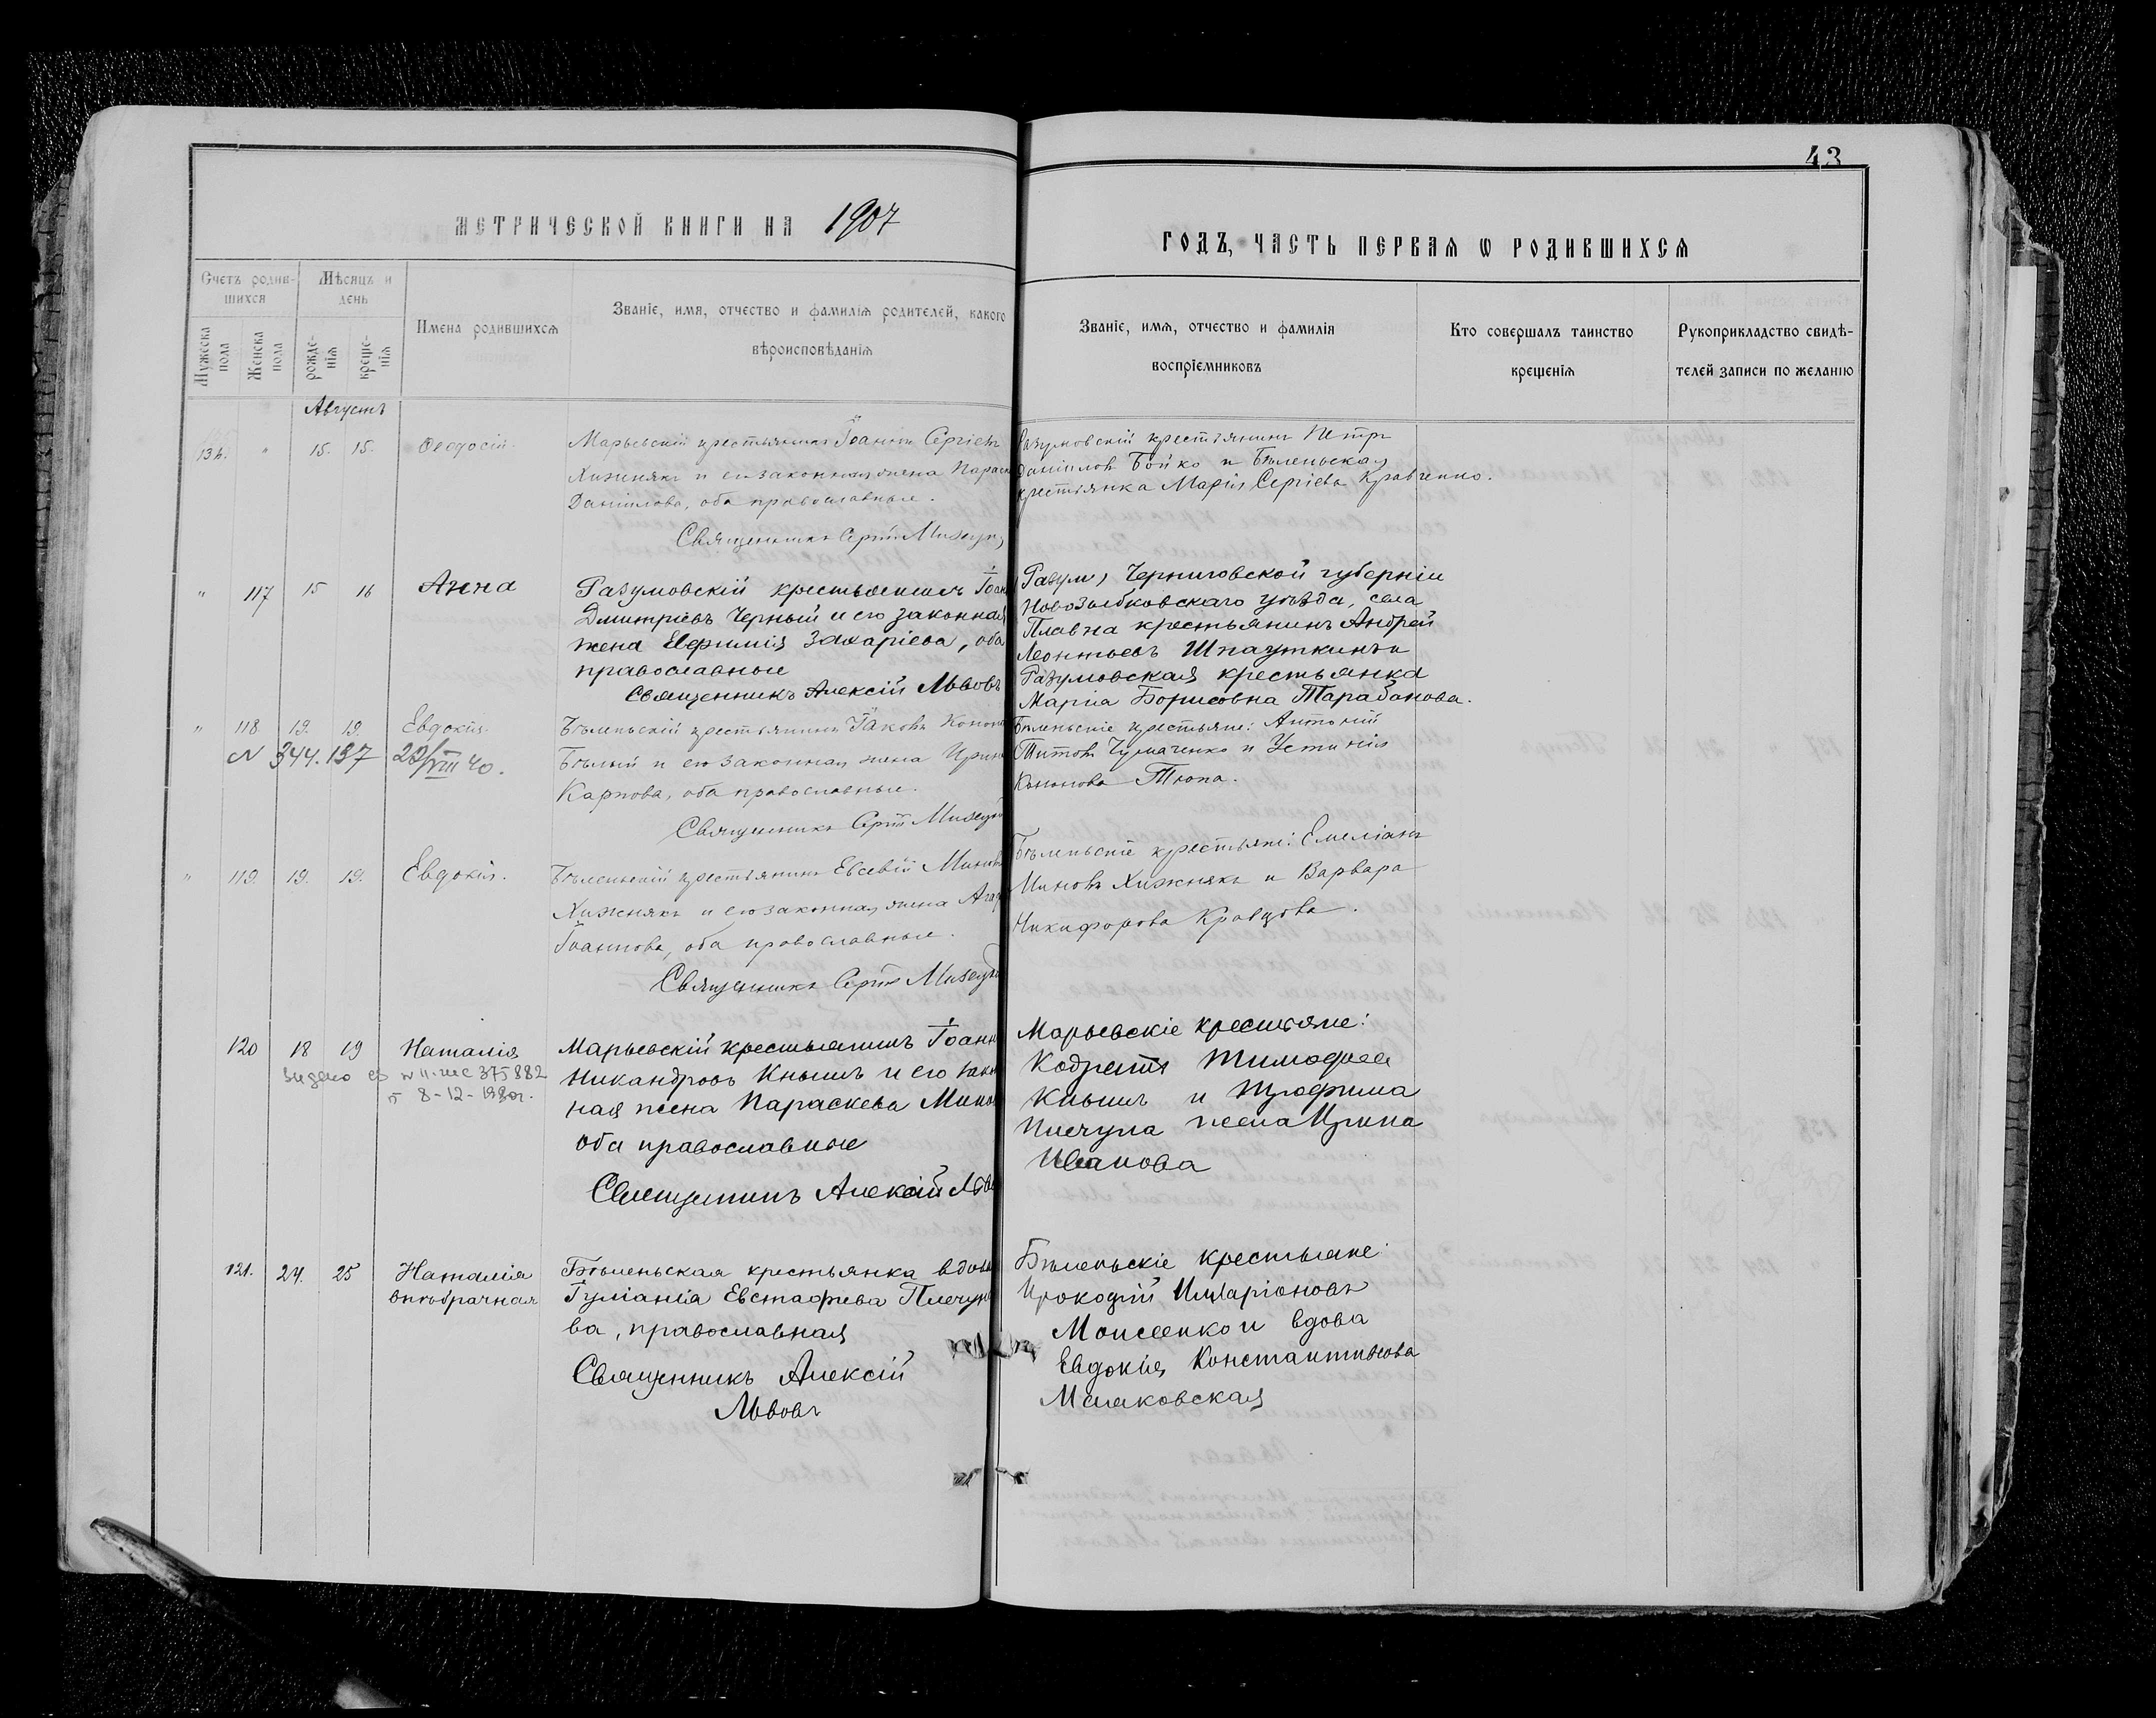 43
МЕТРИЧЕСКОЙ КНИГИ НА 1907
ГОДЪ, ЧАСТЬ ПЕРВАЯ Ѡ РОДИВШИХСЯ
Счетъ родив-
шихся
Мѣсяцъ и
день
Мужеска
пола
Женска
пола
рожде-
нія
креще-
нія
Имена родившихся
Званіе, имя, отчество и фамилія родителей, какого
вѣроисповѣданія
Званіе, имя, отчество и фамилія
воспріемниковъ
Кто совершалъ таинство
крещенія
Рукоприкладство свидѣ-
телей записи по желанію
Августъ
134. " 15. 15. Ѳеодосій.
Марьевскій крестьянинъ Іоаннъ Сергіевъ
Хижнякъ и его законная жена Параск
Даніилова, оба православные.
Священникъ Сергій
Разумовскій крестьянинъ Петръ
Даніиловъ Бойко и Бѣленьская
крестьянка Марія Сергіева Кравченко.
" 117 15 16 Анна
Разумовскій крестьянинъ Іоан
Дмитріевъ Черный и его законная
жена Евфимія Захаріева, оба
православные
Священникъ Алексій Львовъ
Разум, Черниговской губерніи
Новозыбковскаго уѣзда, села
Плавна крестьянинъ Андрей
Леонтьевъ Шпаткинъ и
Разумовская крестьянка
Марія Борисовна Тарабанова.
" 118 19. 19. Евдокія.
N 344.197 29/VIII 40.
Бѣленьскій крестьянинъ Іаковъ Конон
Бѣлый и его законная жена Ирин
Карпова, оба православные.
Священникъ Сергій
Бѣленьскіе крестьяне: Антоній
Титовъ Чумаченко и Устинія
Кононова Тюпа.
" 119. 19. 19. Евдокія.
Бѣленьскій крестьянинъ Евсевій Миновъ
Хижнякъ и его законная жена Агаф
Іоаннова, оба православные.
Священникъ Сергій
Бѣленьскіе крестьяне: Емеліанъ
Миновъ Хижнякъ и Варвара
Никифорова Кравцова.
120 18 19 Наталія
375882
8-12-
Марьевскій крестьянинъ Іоанн
Никандровъ Кнышъ и его закон
ная жена Параскева Минов
оба православные
Священникъ Алексій Льв
Марьевскіе крестьяне:
Кодратъ Тимофеев
Кнышъ и Трофима
Плечуна жена Ирина
Иванова
121. 24. 25 Наталія
внѣбрачная
Бѣленьская крестьянка вдова
Іуліанія Евстафіева Плечуно
ва, православная
Священникъ Алексій
Львовъ
Бѣленьскіе крестьяне:
Прокофій Илларіоновъ
Моисеенко и вдова
Евдокія Константинова
Малаковская